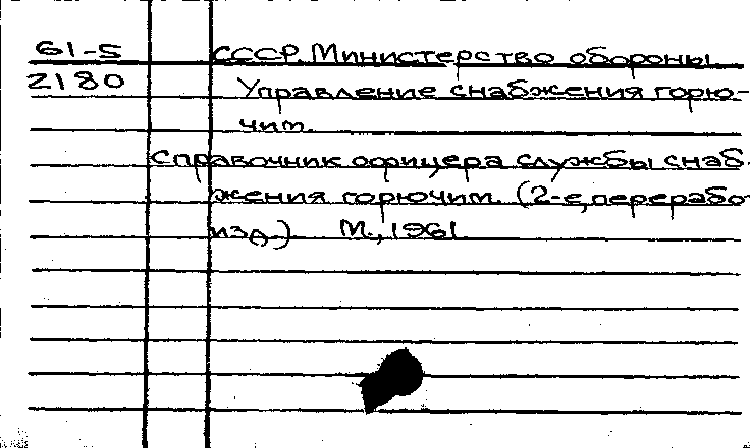 61-5 СССР. Министерство обороны
2180 Управление снабжения горю-
чим.
Справочник офицера службы снаб-
жения горючим. (2-е, переработ
изд.) М., 1961